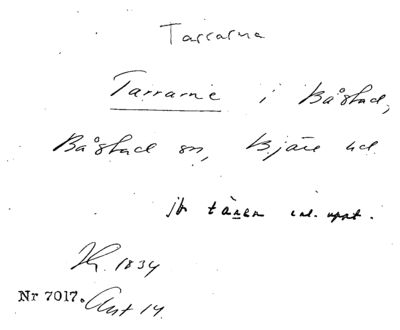 Tarrarna
Tarrarne i Båstad,
Båstad sn, Bjäre hd
jfr tånen enl. uppt.
1834
Nr 7017. Ant 14